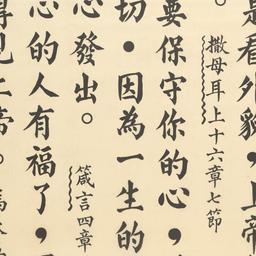 是看外貌，上帝
撒母耳上十六章七節
要保守你的心，
切．因為一生的
心發出。箴言四章
心的人有福了，
得見上帝。馬